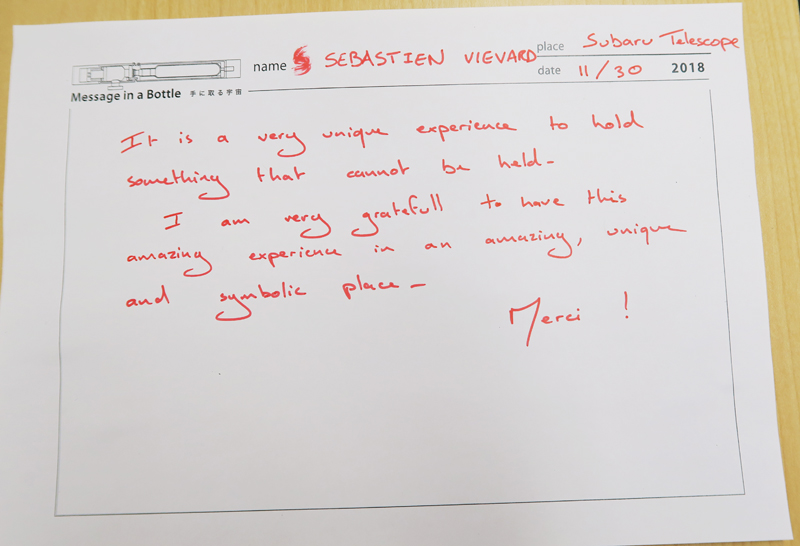 name SEBASTIEN VIEVARD
place Subaru Telescope
date 11/30 2018
Message in a Bottle 手に取る宇宙
It is a very unique experience to hold
something that cannot be held-
I am very gratefull to have this
amazing experience in an amazing, unique
and symbolic place -
Merci !